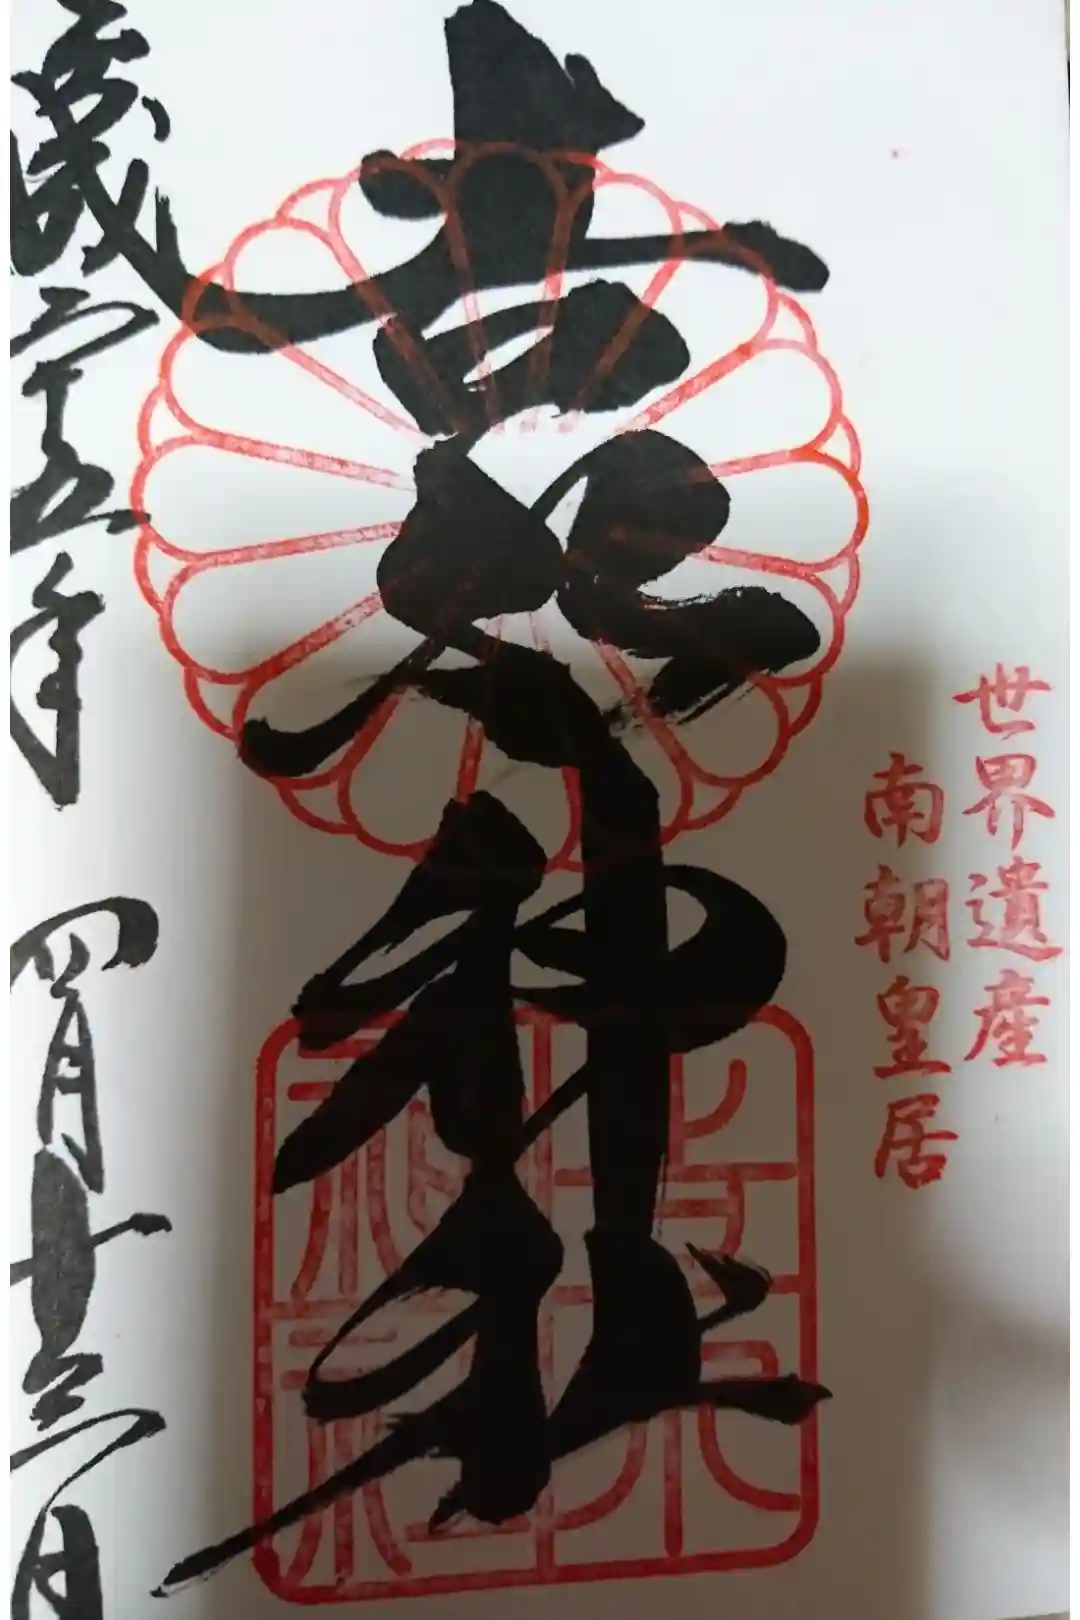 世界遺産
南朝皇居
吉水神社
吉水
神社
平成二十五年 四月十三日